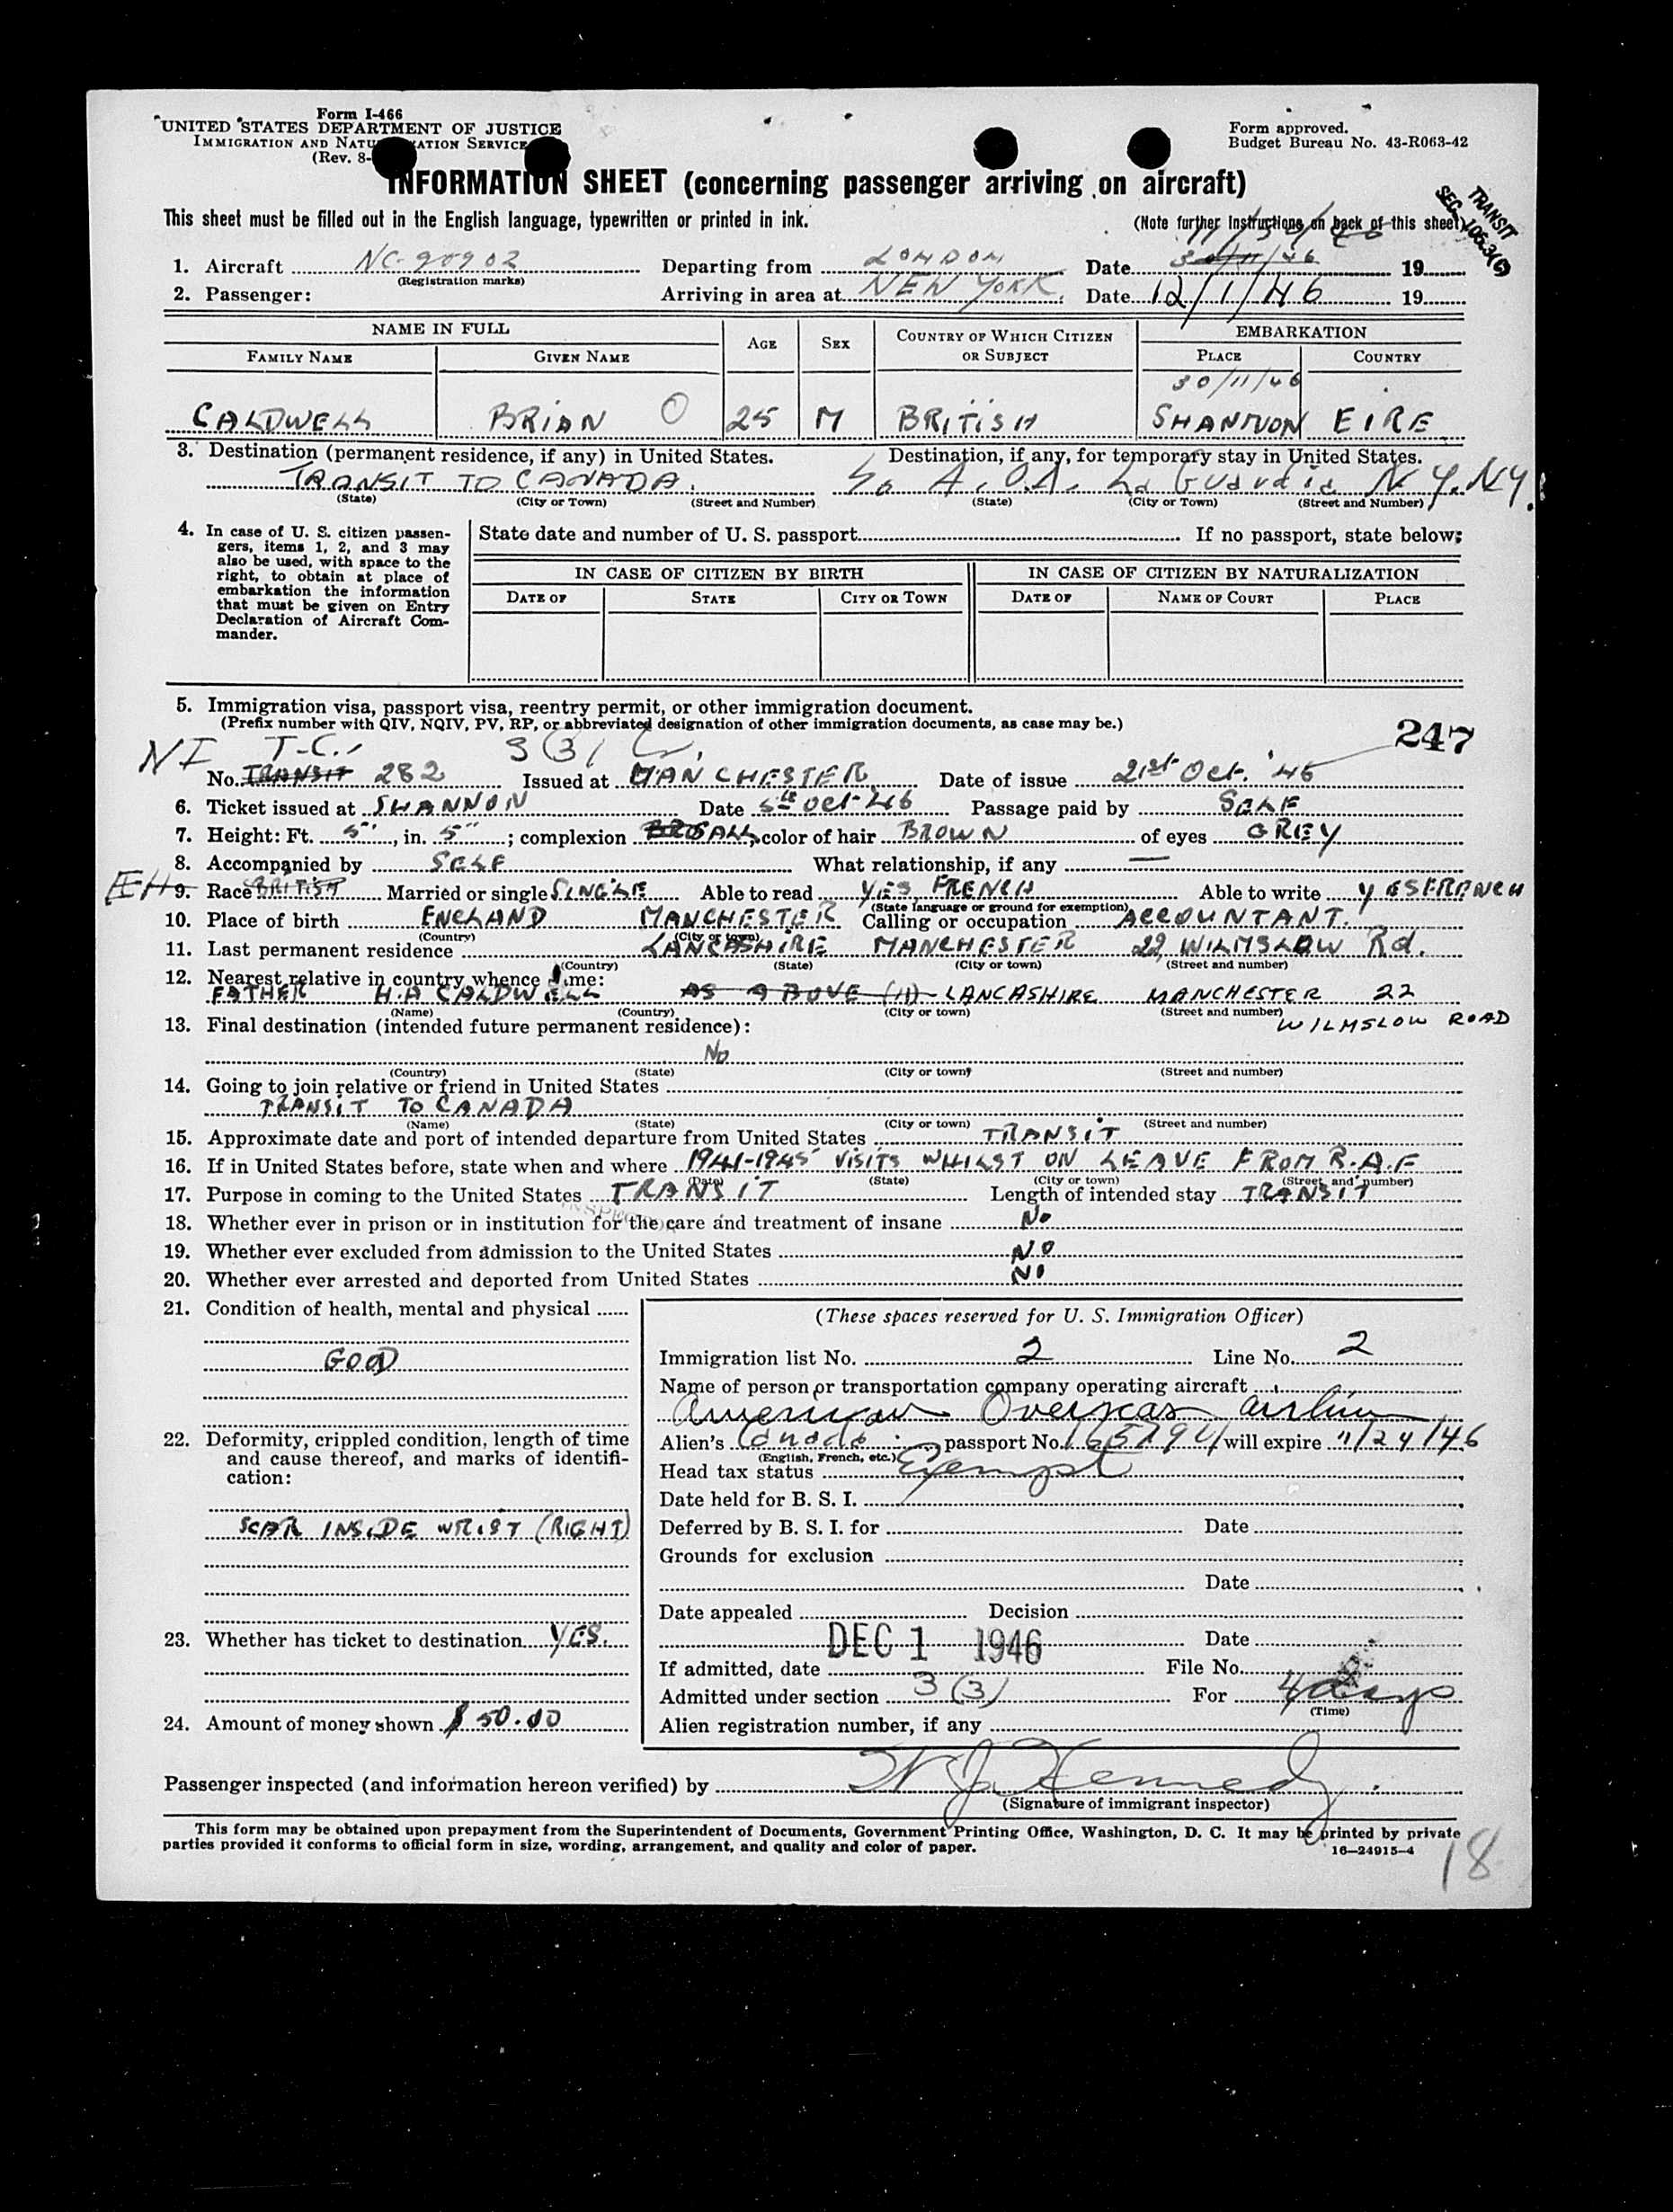 Form I-466
UNITED STATES DEPARTMENT OF JUSTICE
IMMIGRATION AND NATU ATION SERVICE
(Rev. 8-
Form approved.
Budget Bureau No. 43-R063-42
INFORMATION SHEET (concerning passenger arriving on aircraft)
TRANSIT
SEC. 105.3(G)
This sheet must be filled out in the English language, typewritten or printed in ink.
(Note further instructions on back of this sheet)
11/30/46
1. Aircraft NC-90902 Departing from LONDON Date 30/11/46 19
(Registration marks)
2. Passenger: Arriving in area at NEW YORK Date 12/1/46 19
NAME IN FULL AGE SEX COUNTRY OF WHICH CITIZEN OR SUBJECT EMBARKATION
FAMILY NAME GIVEN NAME PLACE COUNTRY
30/11/46
CALDWELL BRIAN O 25 M BRITISH SHANNON EIRE
3. Destination (permanent residence, if any) in United States. Destination, if any, for temporary stay in United States.
TRANSIT TO CANADA. A.O.A. La Guardia N.Y. NY.
(State) (City or Town) (Street and Number) (State) (City or Town) (Street and Number)
4. In case of U. S. citizen passen-
gers, items 1, 2, and 3 may
also be used, with space to the
right, to obtain at place of
embarkation the information
that must be given on Entry
Declaration of Aircraft Com-
mander.
State date and number of U. S. passport If no passport, state below:
IN CASE OF CITIZEN BY BIRTH IN CASE OF CITIZEN BY NATURALIZATION
DATE OF STATE CITY OR TOWN DATE OF NAME OF COURT PLACE
5. Immigration visa, passport visa, reentry permit, or other immigration document.
(Prefix number with QIV, NQIV, PV, RP, or abbreviated designation of other immigration documents, as case may be.)
247
NI T.C. 3(3)
No. TRANSIT 282 Issued at MANCHESTER Date of issue 21st Oct. '46
6. Ticket issued at SHANNON Date 5th Oct 46 Passage paid by SELF
7. Height: Ft. 5', in. 5"; complexion color of hair BROWN of eyes GREY
8. Accompanied by SELF What relationship, if any —
9. Race BRITISH Married or single SINGLE Able to read YES FRENCH Able to write YES FRENCH
(State language or ground for exemption)
10. Place of birth ENGLAND MANCHESTER Calling or occupation ACCOUNTANT.
(Country) (City or town)
11. Last permanent residence LANCASHIRE MANCHESTER 22, WILMSLOW Rd.
(Country) (State) (City or town) (Street and number)
12. Nearest relative in country whence ame:
FATHER H.A CALDWELL AS ABOVE (11) LANCASHIRE MANCHESTER 22
(Name) (Country) (City or town) (Street and number)
WILMSLOW ROAD
13. Final destination (intended future permanent residence):
No
(Country) (State) (City or town) (Street and number)
14. Going to join relative or friend in United States
TRANSIT TO CANADA
(Name) (State) (City or town) (Street and number)
15. Approximate date and port of intended departure from United States TRANSIT
16. If in United States before, state when and where 1941-1945 VISITS WHILST ON LEAVE FROM R.A.F
(Date) (State) (City or town) (Street and number)
17. Purpose in coming to the United States TRANSIT Length of intended stay TRANSIT
18. Whether ever in prison or in institution for the care and treatment of insane No
19. Whether ever excluded from admission to the United States NO
20. Whether ever arrested and deported from United States NO
21. Condition of health, mental and physical
GOOD
22. Deformity, crippled condition, length of time
and cause thereof, and marks of identifi-
cation:
SCAR INSIDE WRIST (RIGHT)
23. Whether has ticket to destination YES.
24. Amount of money shown $ 50.00
(These spaces reserved for U. S. Immigration Officer)
Immigration list No. 2 Line No. 2
Name of person or transportation company operating aircraft
American Overseas Airlines
Alien's Canada passport No. will expire 11/24/46
(English, French, etc.)
Head tax status Exempt
Date held for B. S. I.
Deferred by B. S. I. for Date
Grounds for exclusion
Date
Date appealed Decision
DEC 1 1946 Date
If admitted, date File No.
Admitted under section 3(3) For 4 days
(Time)
Alien registration number, if any
Passenger inspected (and information hereon verified) by W J Kennedy
(Signature of immigrant inspector)
This form may be obtained upon prepayment from the Superintendent of Documents, Government Printing Office, Washington, D. C. It may be printed by private
parties provided it conforms to official form in size, wording, arrangement, and quality and color of paper.
16—24915-4
18